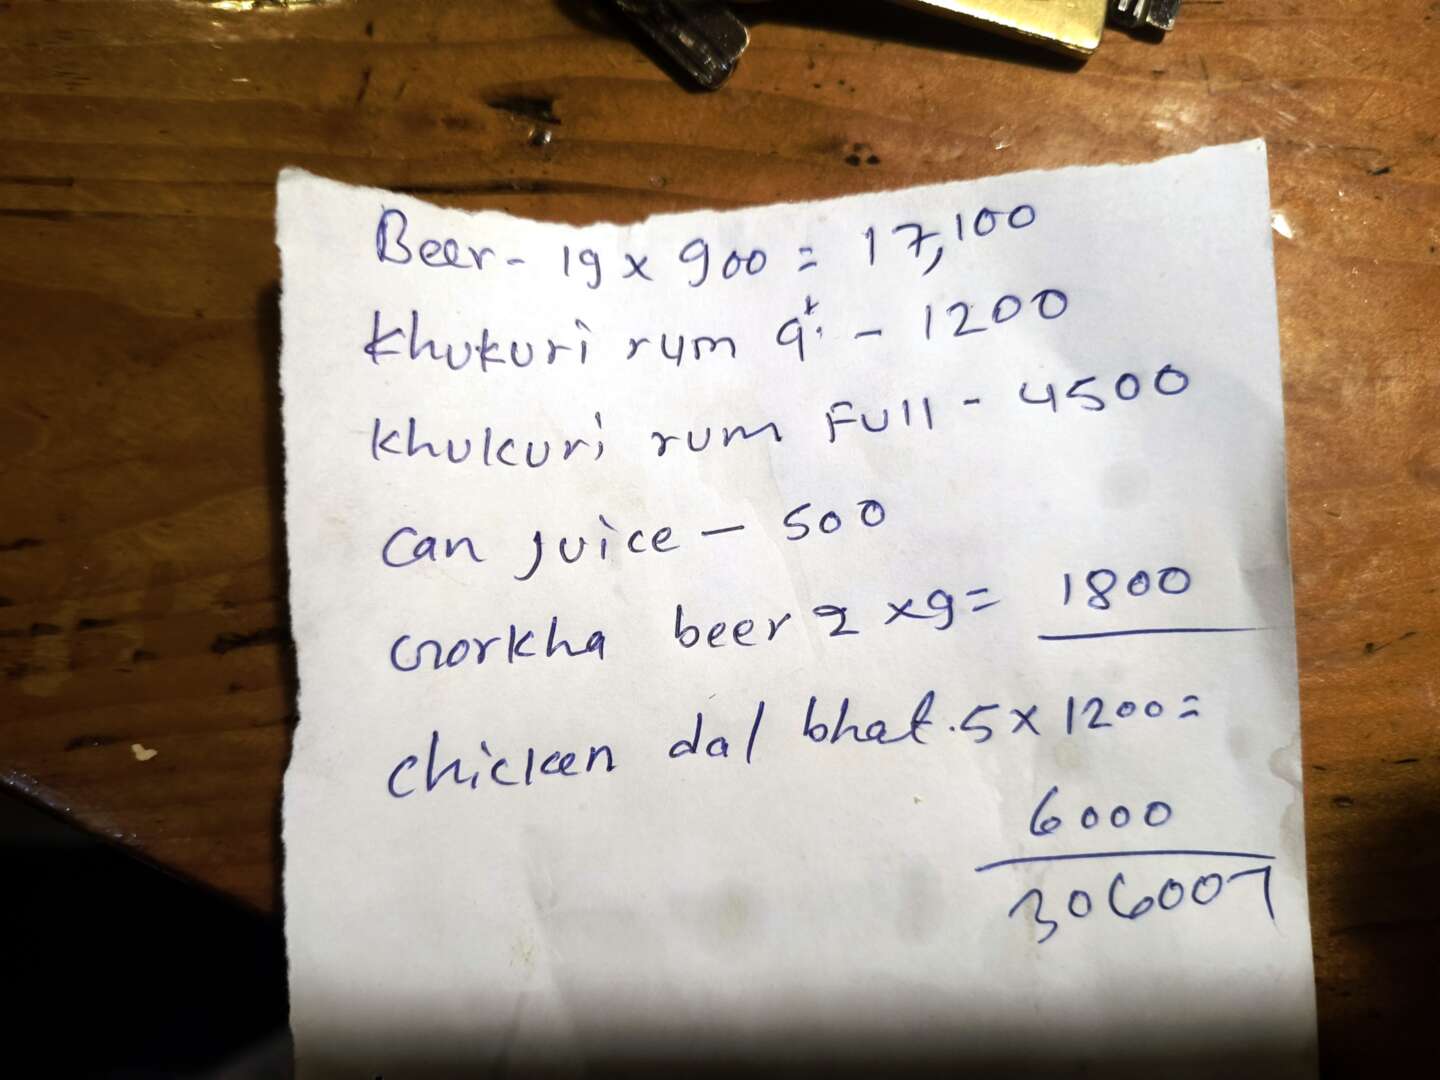 Beer - 19 x 900 = 17,100
Khukuri rum qt. - 1200
Khukuri rum Full - 4500
Can juice - 500
Gorkha beer 2 x 9 = 1800
chicken dal bhat. 5 x 1200 =
6000
30600